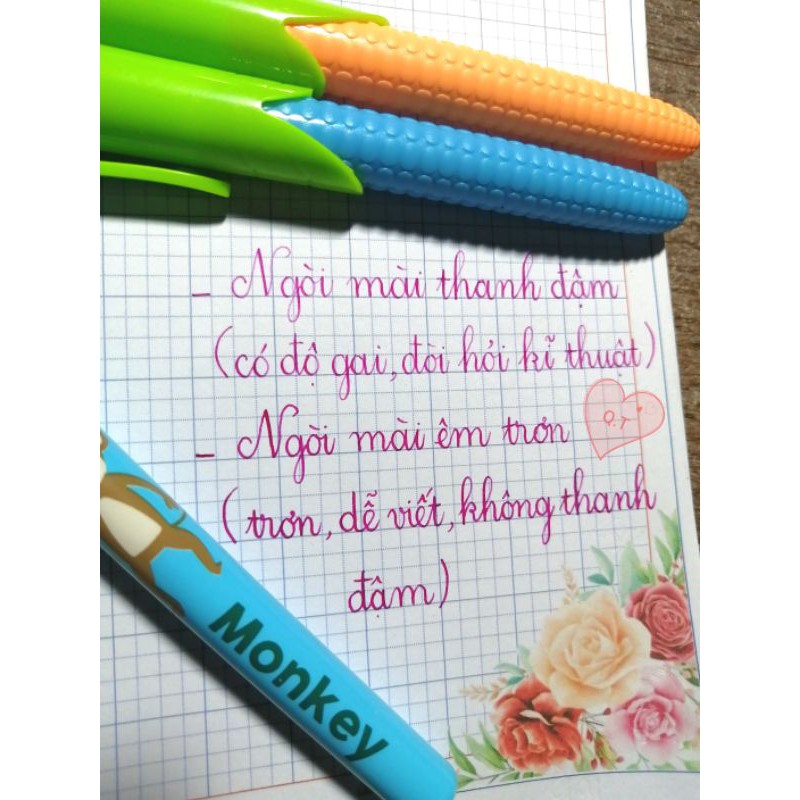 - Ngòi mài thanh đậm
(có độ gai, đòi hỏi kĩ thuật)
Q.T
- Ngòi mài êm trơn
(trơn, dễ viết, không thanh
đậm)
Monkey